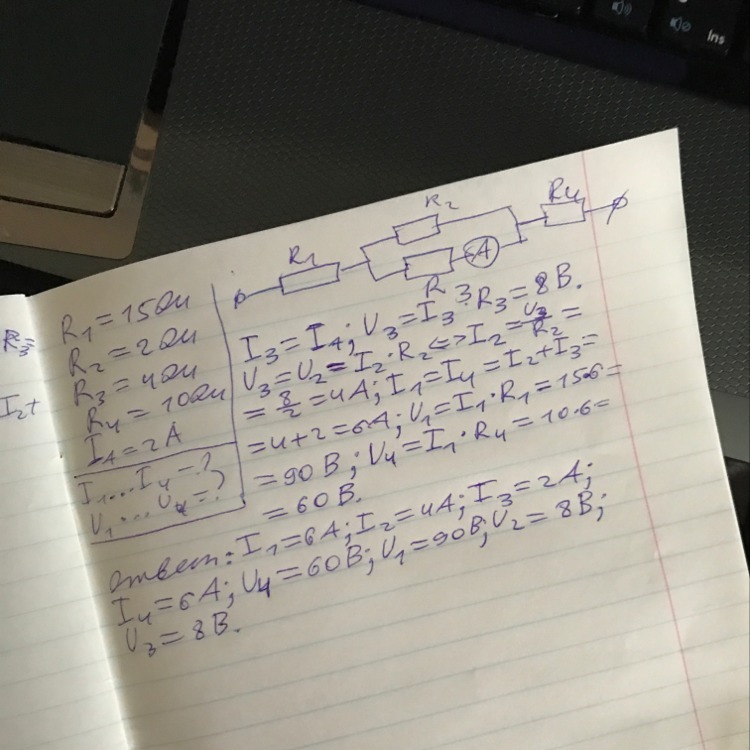 Ins
R₂
R₄
R₁
A
R₃
R₃=
I₂+
R₁=15Ом
R₂=2Ом
R₃=4Ом
R₄=10Ом
I_A=2А
I₁...I₄=?
U₁...U₄=?
I₃=I_A; U₃=I₃·R₃=8В.
U₃=U₂=I₂·R₂<=>I₂=U₃/R₂=
=8/2=4А; I₁=I₄=I₂+I₃=
=4+2=6А; U₁=I₁·R₁=15·6=
=90В; U₄=I₁·R₄=10·6=
=60В.
ответ: I₁=6А; I₂=4А; I₃=2А;
I₄=6А; U₄=60В; U₁=90В; U₂=8В;
U₃=8В.